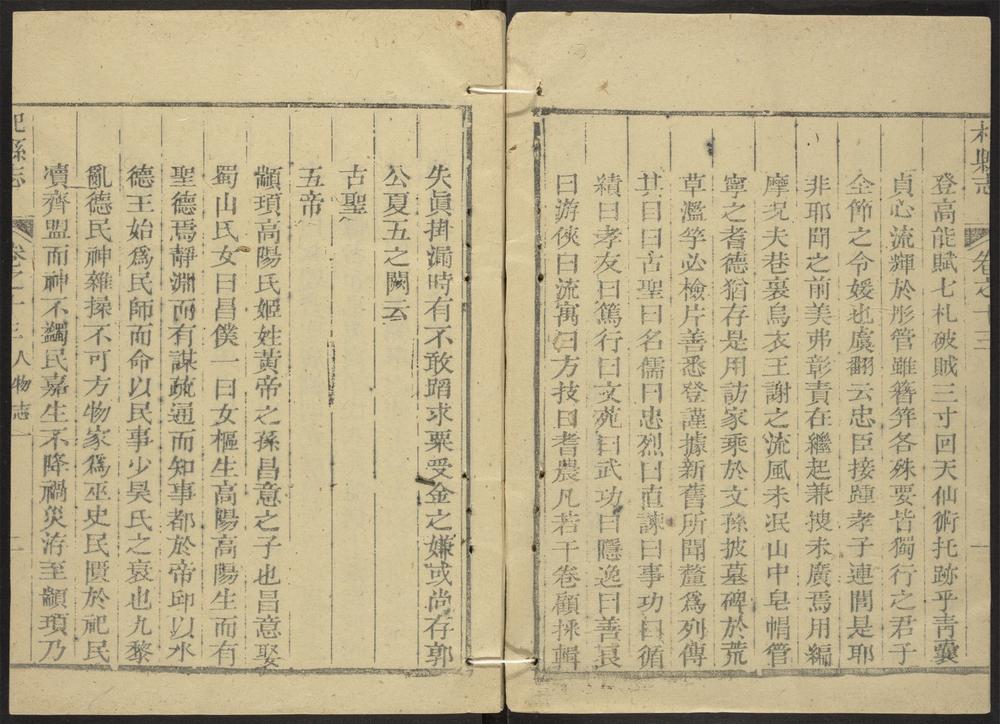 杞縣志
卷之十三
一
登高能賦七札破賊三寸回天仙術托跡乎青囊
貞心流輝於彤管雖簪笄各殊要皆獨行之君子
全節之令媛也虞翻云忠臣接踵孝子連閭是耶
非耶聞之前美弗彰責在繼起兼搜未廣焉用編
摩況夫巷裏烏衣王謝之流風未泯山中皂帽管
寧之耆德猶存是用訪家乘於文孫披墓碑於荒
草濫竽必檢片善悉登謹據新舊所聞釐爲列傳
其目曰古聖曰名儒曰忠烈曰直諫曰事功曰循
績曰孝友曰篤行曰文苑曰武功曰隱逸曰善良
曰游俠曰流寓曰方技曰耆農凡若干卷顧採輯
失眞掛漏時有不敢蹈求粟受金之嫌或尚存郭
公夏五之闕云
古聖
五帝
顓頊高陽氏姬姓黃帝之孫昌意之子也昌意娶
蜀山氏女曰昌僕一曰女樞生高陽高陽生而有
聖德焉靜淵而有謀疏通而知事都於帝邱以水
德王始爲民師而命以民事少昊氏之衰也九黎
亂德民神雜揉不可方物家爲巫史民匱於祀民
凟齊盟而神不蠲民嘉生不降禍災洊至顓頊乃
杞縣志
卷之十三 人物志一
二